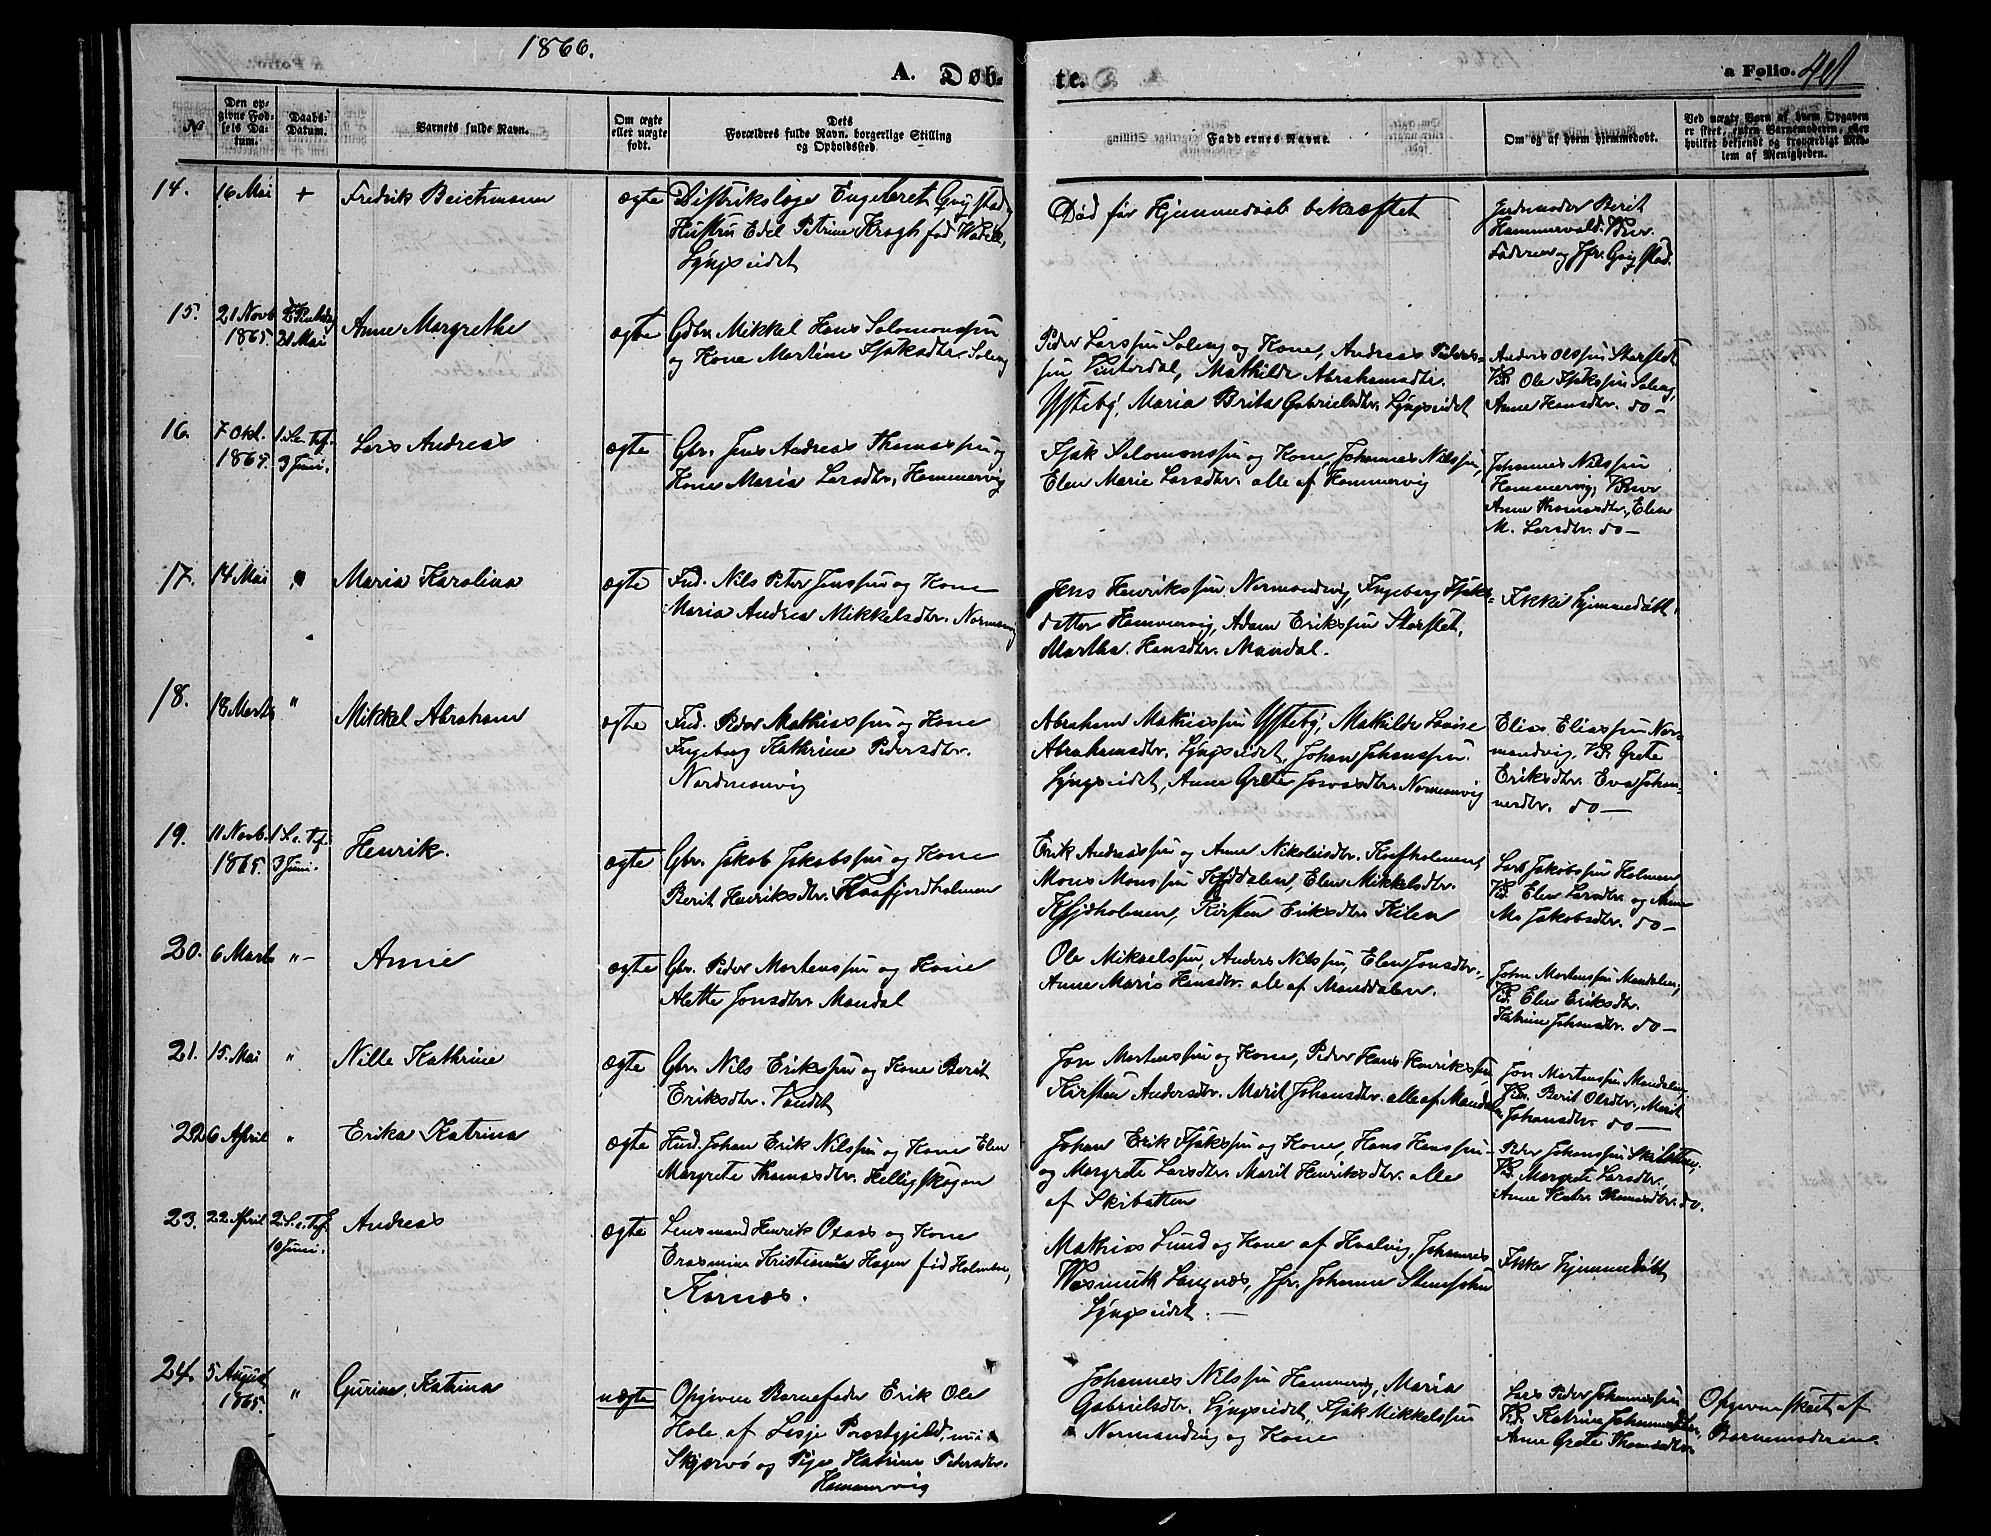 1866.
A. Døb-
te.
a Folio. 401
No
Den op-
givne Fød-
sels Da-
tum.
Daabs-
Datum.
Barnets fulde Navn.
Om ægte
eller uægte
født.
Dets
Forældres fulde Navn, borgerlige Stilling
og Opholdssted.
Faddernes Navne.
Om og af hvem hjemmedøbt.
Ved uægte Barn af hvem Opgaven
er skeet, enten Barnemoderen, eller
hvilket bekjendt og troværdigt Med-
lem af Menigheden.
14.
16 Mai
+
Fredrik Beichmann
ægte
Distriktslæge Engebret Gvigstad,
Hustru Edel Petrine Krogh fød
Lyngseidet
Død før Hjemmedaab bekræftet
Jordmoder Berit
Hammervold.
Faderen og Jfr. Gvigstad.
15.
21 Novb
1865.
21 Mai
Anne Margrethe
ægte
Gbr. Mikkel Hans Salomonssen
og Kone Martine Isaksdtr. Soleng
Peder Larssen Soleng og Kone, Andreas Peders-
sen Vinterdal, Mathilde Abrahamsdtr.
Ysteby, Maria Brita Gabrielsdtr. Lyngseidet
Anders Olssen Storslet
Vid. Ole Isakssen Soleng,
Anne Hansdtr. do —
16.
7 Okt.
1865.
1 S. e. Tref.
3 Juni.
Lars Andreas
ægte
Gbr. Jens Andreas Thomassen og
Kone Maria Larsdtr. Hammervig
Isak Salomonssen og Kone, Johannes Nilssen,
Elen Marie Larsdtr. alle af Hammervig
Johannes Nilssen
Hammervig,
Anne Thomasdtr., Elen
M. Larsdtr. do —
17.
14 Mai
"
Maria Karolina
ægte
Ind. Nils Peter Jenssen og Kone
Maria Andrea Mikkelsdtr. Normanvig
Jens Henrikssen Normandvig, Ingeborg Isaks-
datter Hammervig, Adam Erikssen Storslet,
Martha Hansdtr. Mandal.
Ikke hjemmedøbt.
18.
18 Marts
"
Mikkel Abraham
ægte
Ind. Peder Mathissen og Kone
Ingeborg Kathrine Pedersdtr.
Nordmanvig
Abraham Mathissen Ysteby, Mathilde Lovise
Abrahamsdtr. Lyngseidet, Johan Johanssen
Lyngseidet, Anne Grete Josvasdtr. Normanvig
Elias Eliassen Nor-
mandvig. Vid. Grete
Eriksdtr. Eva Johan-
nesdtr. do —
19.
11 Novb.
1865.
1 S. e. Tref.
3 Juni.
Henrik.
ægte
Gbr. Jakob Jakobssen og Kone
Berit Henriksdtr. Kaafjordholmen
Erik Andreassen og Anne Nikolaisdtr.
Mons Monssen Kjiddalen, Elen Mikkelsdtr.
Kirsten Eriksdtr. Kilen
Lars Jakobssen Holmen
Vid. Elen Larsdtr. og Anne
M. Jakobsdtr. do —
20.
6 Marts
" —
Anne
ægte
Gbr. Peder Mortenssen og Kone
Alette Jonsdtr. Mandal
Ole Mikkelssen, Anders Nilssen, Elen Jonsdtr.,
Anne Maria Hansdtr. alle af Manddalen.
John Mortenssen Mandalen,
Vid. Elen Eriksdtr.
Katrine Johansdtr. do —
21.
15. Mai
"
Nille Kathrine
ægte
Gbr. Nils Erikssen og Kone Berit
Eriksdtr. Vandet
Jon Mortenssen og Kone, Peder Hans Henrikssen,
Kirsten Andersdtr. Marit Johansdtr. alle af Mandalen
Jon Mortenssen Mandalen,
Vid. Berit Olsdtr., Marit
Johansdtr. do —
22.
26 April
"
Erika Katrina
ægte
Husd. Johan Erik Nilssen og Kone Elen
Margrete Thomasdtr. Helligskogen
Johan Erik Isakssen og Kone, Hans Hanssen
og Margrete Larsdtr. Marit Henriksdtr. alle
af Skibotten
Peder Johanssen Skibotten,
Vid. Margrete Larsdtr.,
Anne Thomasdtr. do.
23.
22 April
2 S. e. Tref.
10 Juni.
Andreas
ægte
Lensmand Henrik Olsen og Kone
Erasmine Kristianna Hagen fød Holmboe,
Kornæs.
Mathias Lund og Kone af Kvalvig, Johannes
Wasmuth Langnæs, Jfr. Johanne Steensohn
Lyngseidet. —
Ikke hjemmedøbt
24.
5 August
1865.
"
Gurine Katrina
uægte
Opgiven Barnefader Erik Ole
Hole af Lesje Præstgjeld, nu i
Skjervø og Pige Katrine Pedersdtr.
Hammervig
Johannes Nilssen Hammervig, Maria
Gabrielsdtr. Lyngseidet, Isak Mikkelssen
Normandvig og Kone
Lars Peder Johannessen
Vid. Katrina Johannesdtr.,
Anne Grete Thomasdtr.
Opgaven skeet af
Barnemoderen.